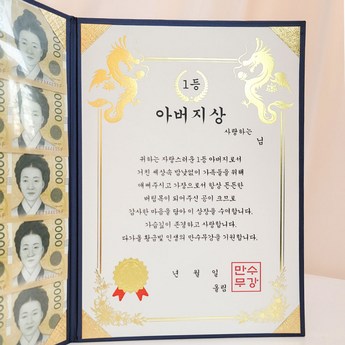 1등
아버지상
사랑하는
님
귀하는 자랑스러운 1등 아버지로서
거친 세상속 밤낮없이 가족들을 위해
애써주시고 가장으로서 항상 든든한
버팀목이 되어주신 공이 크므로
감사한 마음을 담아 이 상장을 수여합니다.
가슴깊이 존경하고 사랑합니다.
다가올 황금빛 인생의 만수무강을 기원합니다.
년 월 일
올림
만수
무강